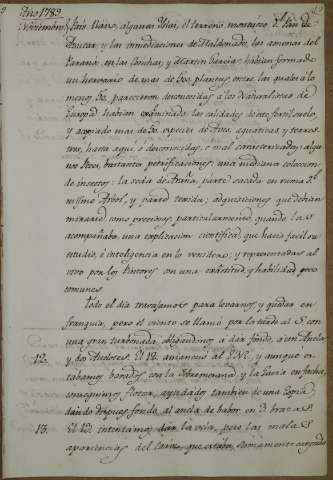 Año 1789
Noviembre
País llano, algunas Islas, el terreno montuoso de Pan de
Azucar, y las inmediaciones de Maldonado, las amenas del
Paraná, en las Conchas, y Martin Garcia; habian formado
un herbario de mas de 500 plantas, entre las quales à lo
menos parecieron desconocidas à los Naturalistas de
Europa; habian examinado las calidades de este fertil suelo,
y acopiado mas de especies de Aves, aquaticas y terres-
tres, hasta aquí desconocidas, ò mal caracterizadas; algu-
nos Peces, bastantes petrificaciones, una mediana coleccion
de insectos: la seda de Araña, parte sacada en rama del
mismo Arbol, y parte texida; adquisiciones que debian
mirarse como preciosas particularmente quando las
acompañaba una explicacion cientifica que hacia facil su
estudio, è inteligencia en lo venidero; y representadas al
vivo por los Pintores con una exâctitud, y habilidad poco
comunes.
Todo el dia travajamos para levarnos y quedar en
franquia, pero el viento se llamó por la tarde al S. con
una gran turbonada, obligandonos à dar fondo, à ten Ancla,
y dos Anclotes.
12. El 12. amaneció al y aunque es-
tabamos bordos con la y la
conseguimos flotar, ayudados tambien de una Espia,
dando despues fondo, al ancla de babor en 3. brazas
13. El 13. intentamos dar la vela, pero las malas
apariencias del cariz, que estaba sumamente cargado